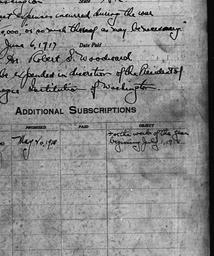 expenses incurred during the war
,000, or so much thereof as may be necessary"
June 6, 1917 Date Paid
Dr. Robert S. Woodward
be expended in discretion of the President of
Institution of Washington.
ADDITIONAL SUBSCRIPTIONS
PROMISED PAID OBJECT
for the work of the year
May 20, 1918 beginning July 1, 1918